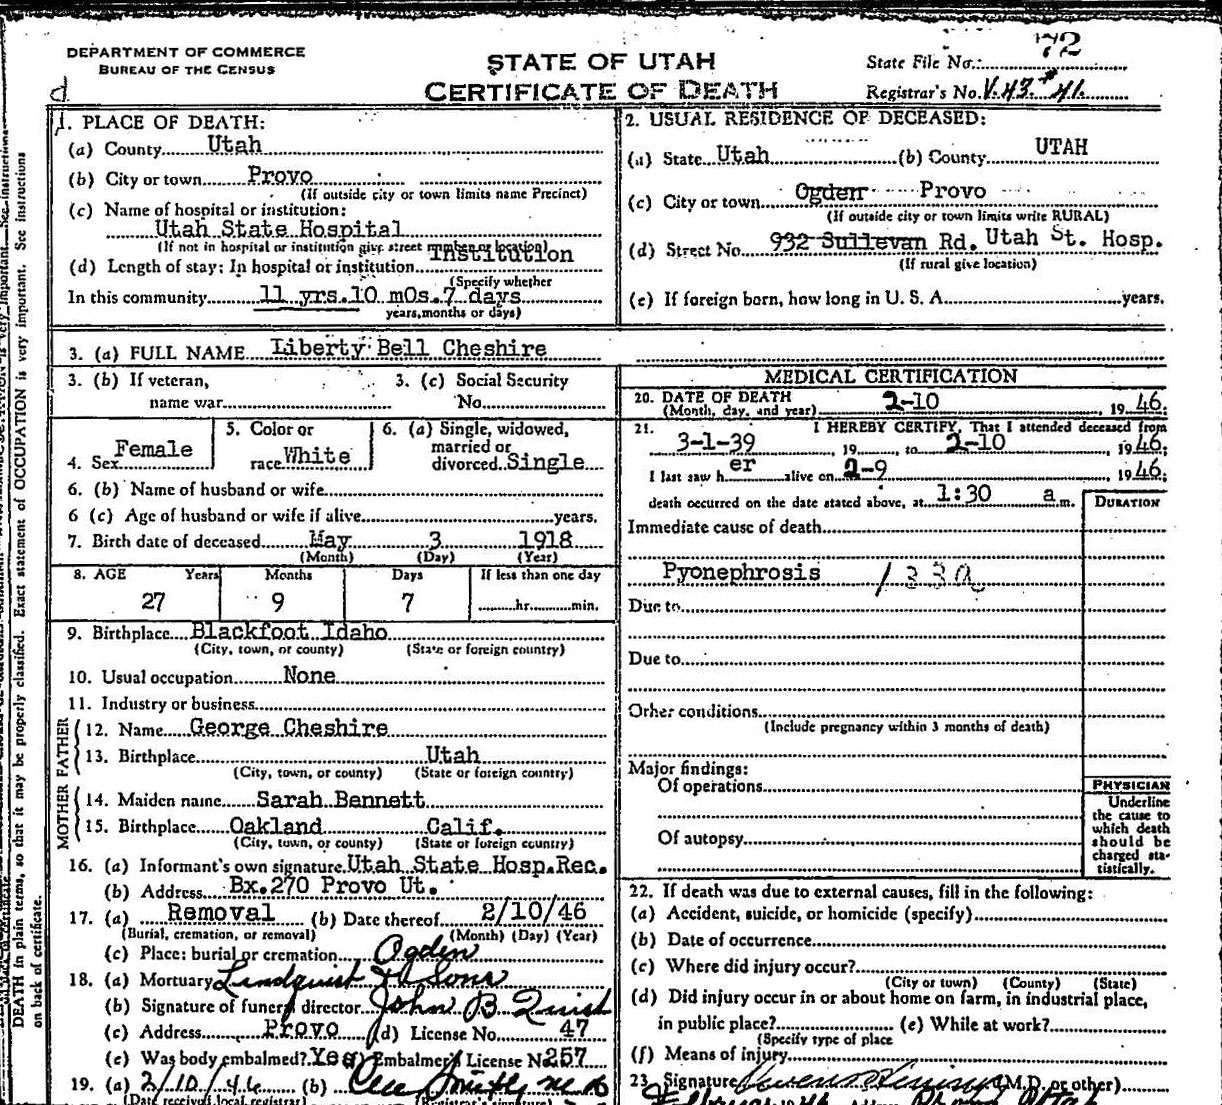 DEPARTMENT OF COMMERCE
BUREAU OF THE CENSUS
STATE OF UTAH
CERTIFICATE OF DEATH
State File No. 72
Registrar's No. V.43 # 41
d
1. PLACE OF DEATH:
(a) County Utah
(b) City or town Provo
(If outside city or town limits name Precinct)
(c) Name of hospital or institution:
Utah State Hospital
(If not in hospital or institution give street number or location)
(d) Length of stay: In hospital or institution Institution
(Specify whether
In this community 11 yrs.10 mOs.7 days
years, months or days)
2. USUAL RESIDENCE OF DECEASED:
(a) State Utah (b) County UTAH
(c) City or town Ogden Provo
(If outside city or town limits write RURAL)
(d) Street No. 932 Sullevan Rd. Utah St. Hosp.
(If rural give location)
(e) If foreign born, how long in U. S. A. years.
3. (a) FULL NAME Liberty Bell Cheshire
3. (b) If veteran, name war
3. (c) Social Security No.
4. Sex Female
5. Color or race White
6. (a) Single, widowed, married or divorced Single
6. (b) Name of husband or wife
6 (c) Age of husband or wife if alive years.
7. Birth date of deceased May 3 1918
(Month) (Day) (Year)
8. AGE Years Months Days If less than one day
27 9 7 hr. min.
9. Birthplace Blackfoot Idaho
(City, town, or county) (State or foreign country)
10. Usual occupation None
11. Industry or business
FATHER
12. Name George Cheshire
13. Birthplace Utah
(City, town, or county) (State or foreign country)
MOTHER
14. Maiden name Sarah Bennett
15. Birthplace Oakland Calif.
(City, town, or county) (State or foreign country)
16. (a) Informant's own signature Utah State Hosp.Rec.
(b) Address Bx.270 Provo Ut.
17. (a) Removal (b) Date thereof 2/10/46
(Burial, cremation, or removal) (Month) (Day) (Year)
(c) Place: burial or cremation Ogden
18. (a) Mortuary Lindquist & Sons
(b) Signature of funeral director John B Quist
(c) Address Provo (d) License No. 47
(e) Was body embalmed? Yes (f) Embalmer's License No. 257
19. (a) 2/10/46 (b)
(Date received local registrar) (Registrar's signature)
MEDICAL CERTIFICATION
20. DATE OF DEATH
(Month, day, and year) 2-10, 19 46;
21. I HEREBY CERTIFY, That I attended deceased from
3-1-39, 19 , to 2-10 19 46;
I last saw h er alive on 2-9 19 46;
death occurred on the date stated above, at 1:30 a m.
DURATION
Immediate cause of death
Pyonephrosis 133a
Due to
Due to
Other conditions
(Include pregnancy within 3 months of death)
Major findings:
Of operations
Of autopsy
PHYSICIAN
Underline
the cause to
which death
should be
charged sta-
tistically.
22. If death was due to external causes, fill in the following:
(a) Accident, suicide, or homicide (specify)
(b) Date of occurrence
(c) Where did injury occur?
(City or town) (County) (State)
(d) Did injury occur in or about home on farm, in industrial place,
in public place? (e) While at work?
(Specify type of place
(f) Means of injury
23 Signature (M.D. or other)
DEATH in plain terms, so that it may be properly classified. Exact statement of OCCUPATION is very important. See instructions
on back of certificate.